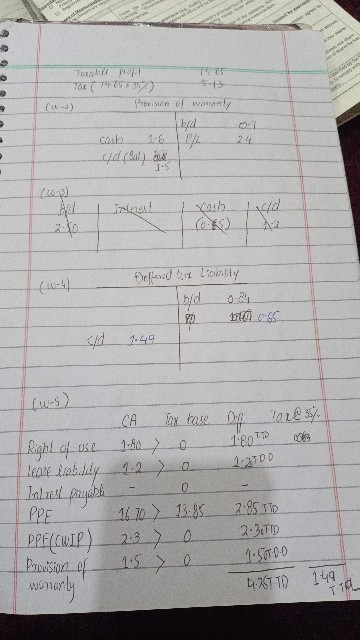 Taxable profit 14.65
Tax (14.65 x 35%) 5.13
(W-2) Provision of warranty
b/d 0.7
cash 1.6 P/L 2.4
c/d (Bal)
1.5
(W-3)
b/d Interest Cash c/d
2.50 1.2
(W-4) Deffered tax Liability
b/d 0.84
0.65
c/d 1.49
(W-5)
CA Tax base Diff Tax@35%
Right of use 1.80 > 0 1.80 TTD
Lease liability 1.2 > 0 1.2 TDD
Intrest payable - 0 -
PPE 16.70 > 13.85 2.85 TTD
PPE (CWIP) 2.3 > 0 2.3 TTD
Provision of 1.5 > 0 1.50 TDD
warranty 4.25 TTD 1.49